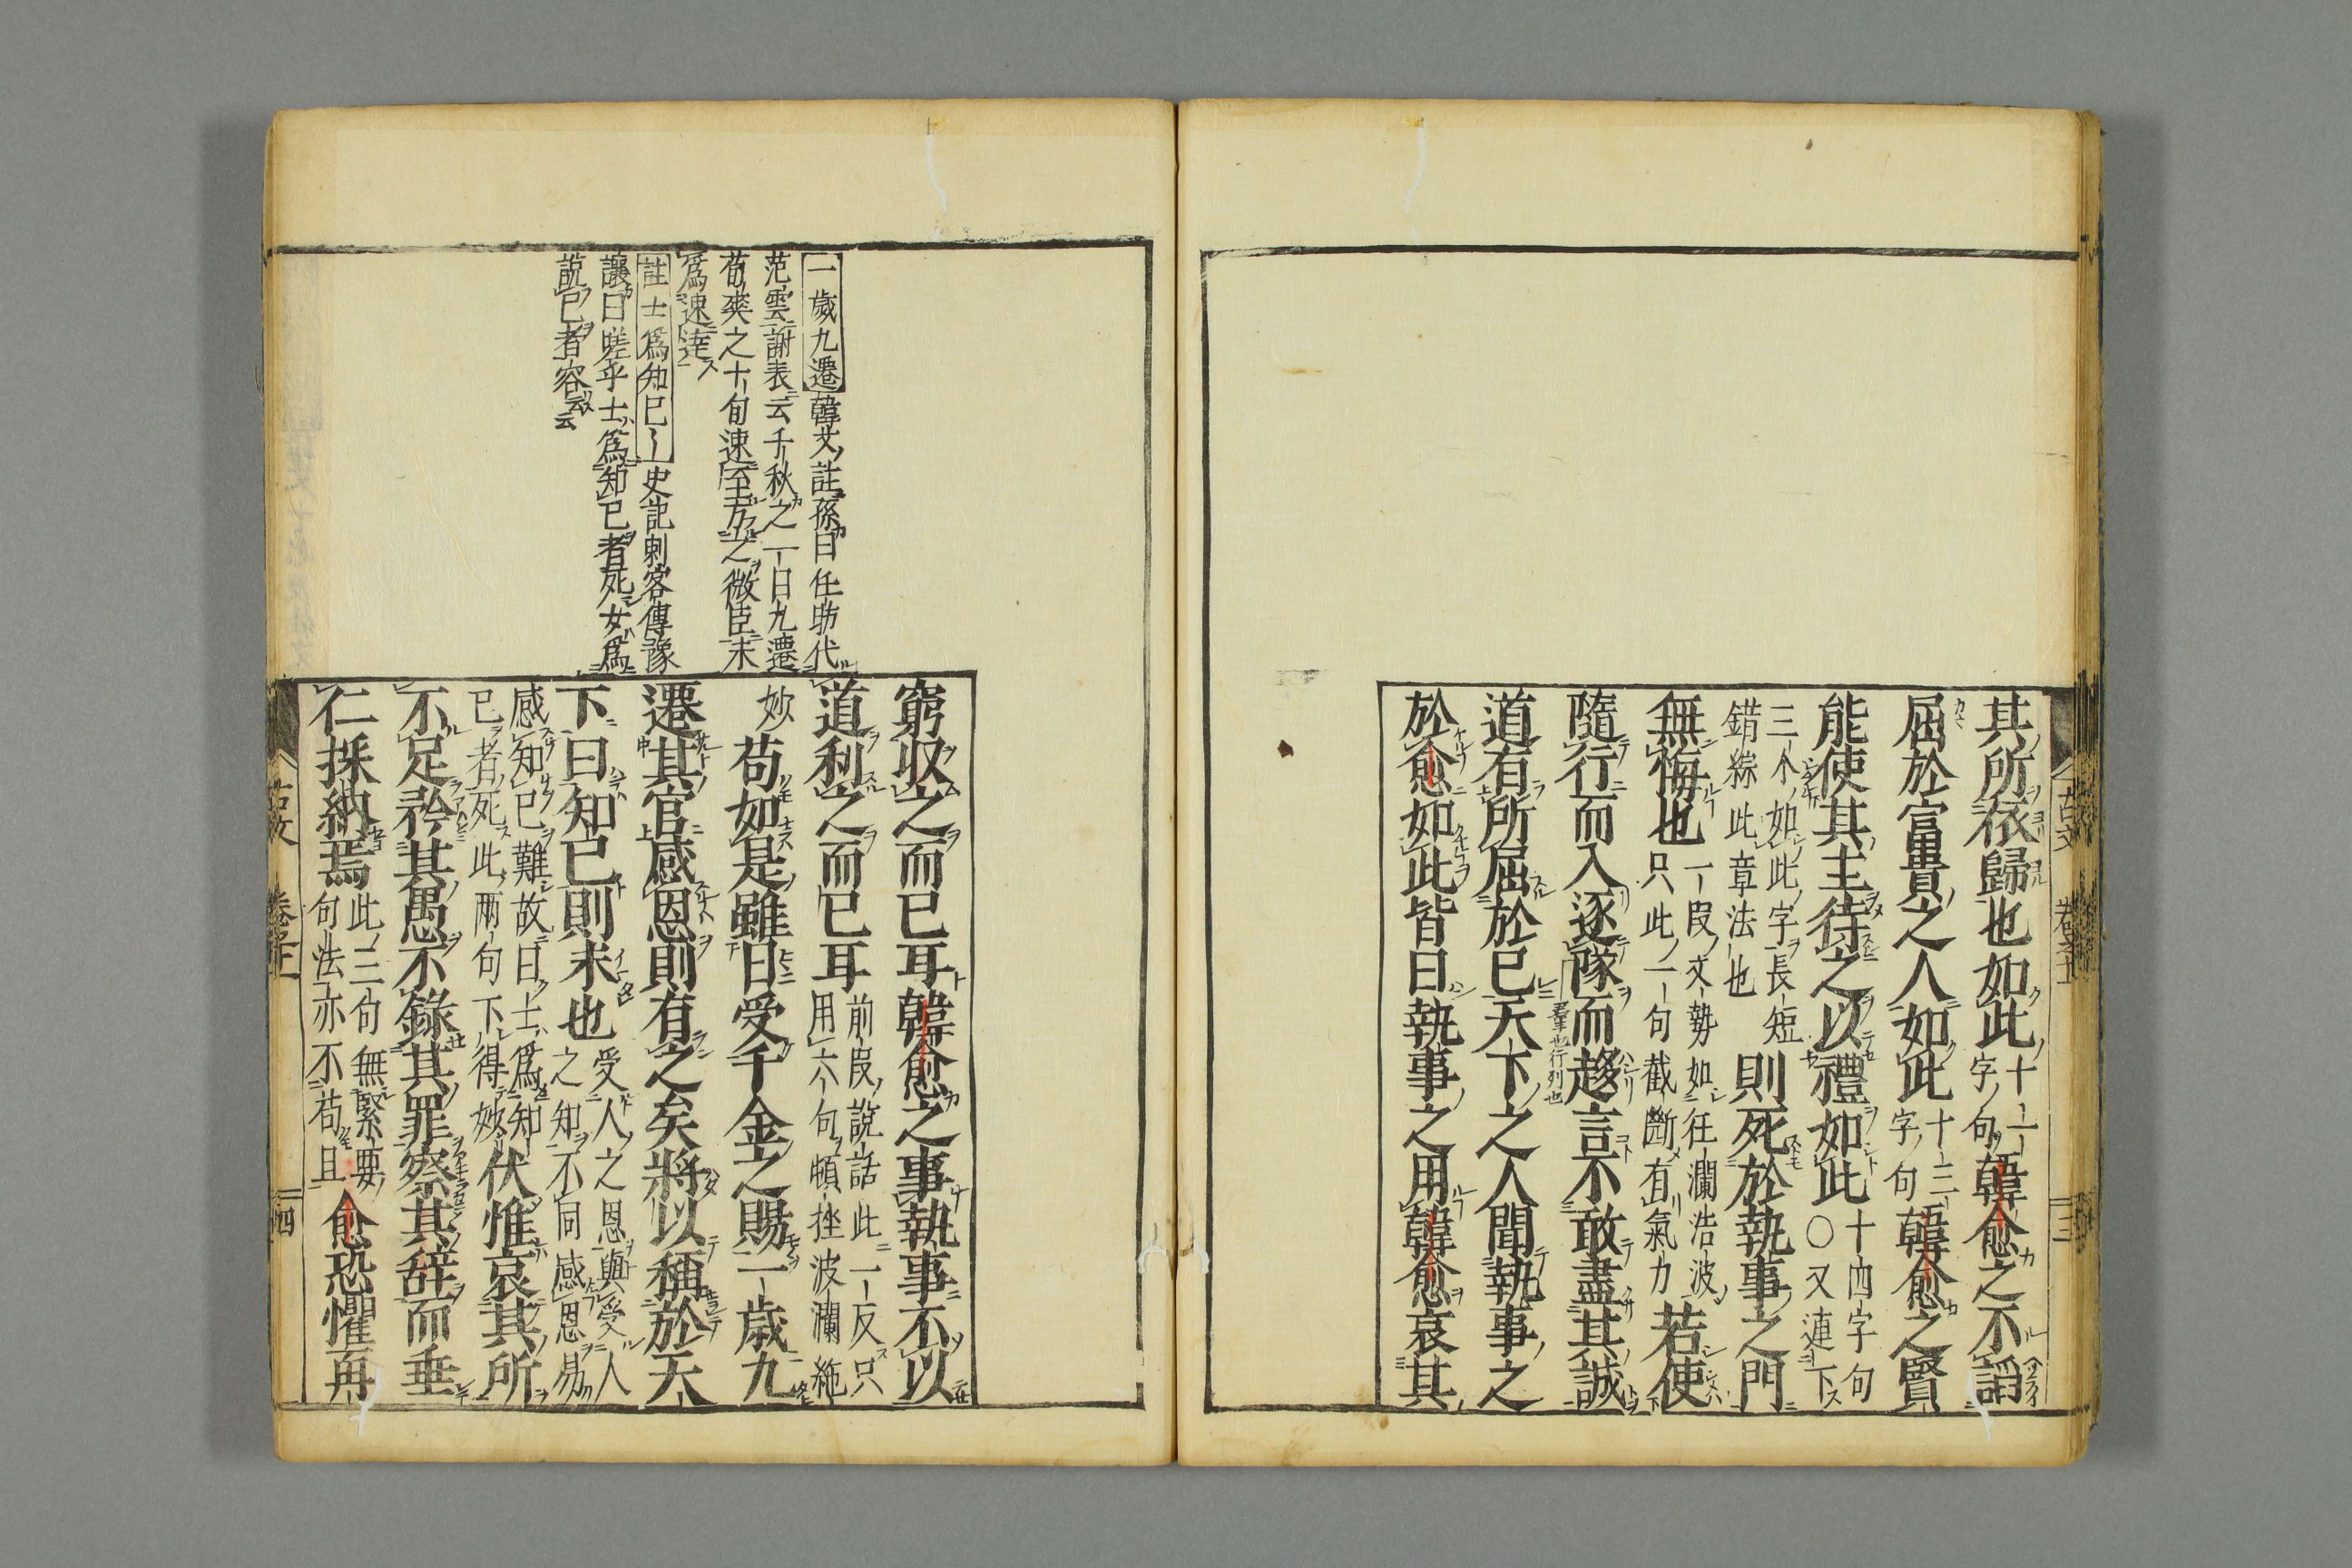 其所依歸也如此十一字句韓愈之不諂
屈於富貴之人如此十三字句韓愈之賢
能使其主待之以禮如此十四字句○又連下
三个如此字長短錯綜此章法也則死於執事之門
無悔也一段文勢如狂瀾浩波只此一句截斷有氣力若使
隨行而入逐隊羣也行列也而趍言不敢盡其誠
道有所屈於已天下之人聞執事之
於愈如此皆曰執事之用韓愈哀其
古文
三
一歲九遷韓文註孫曰任昉代
范雲謝表云千秋之一日九遷
荀爽之十旬速至方之微臣未
爲速達
註士爲知已〻史記刺客傳豫
讓曰嗟乎士爲知已者死女爲
說已者容云云
窮収之而已耳韓愈之事執事不以
道利之而已耳前段說話此一反只用六句頓挫波瀾絶
妙苟如是雖日受千金之賜一歲九
遷其官感恩則有之矣將以稱於天
下曰知已則未也受人之恩與受人之知不同感恩易
感知已難故曰士爲知已者死此兩句下得妙伏惟哀其所
不足矜其愚不錄其罪察其辭而垂
仁採納焉此三句無緊要句法亦不苟且愈恐懼再
四